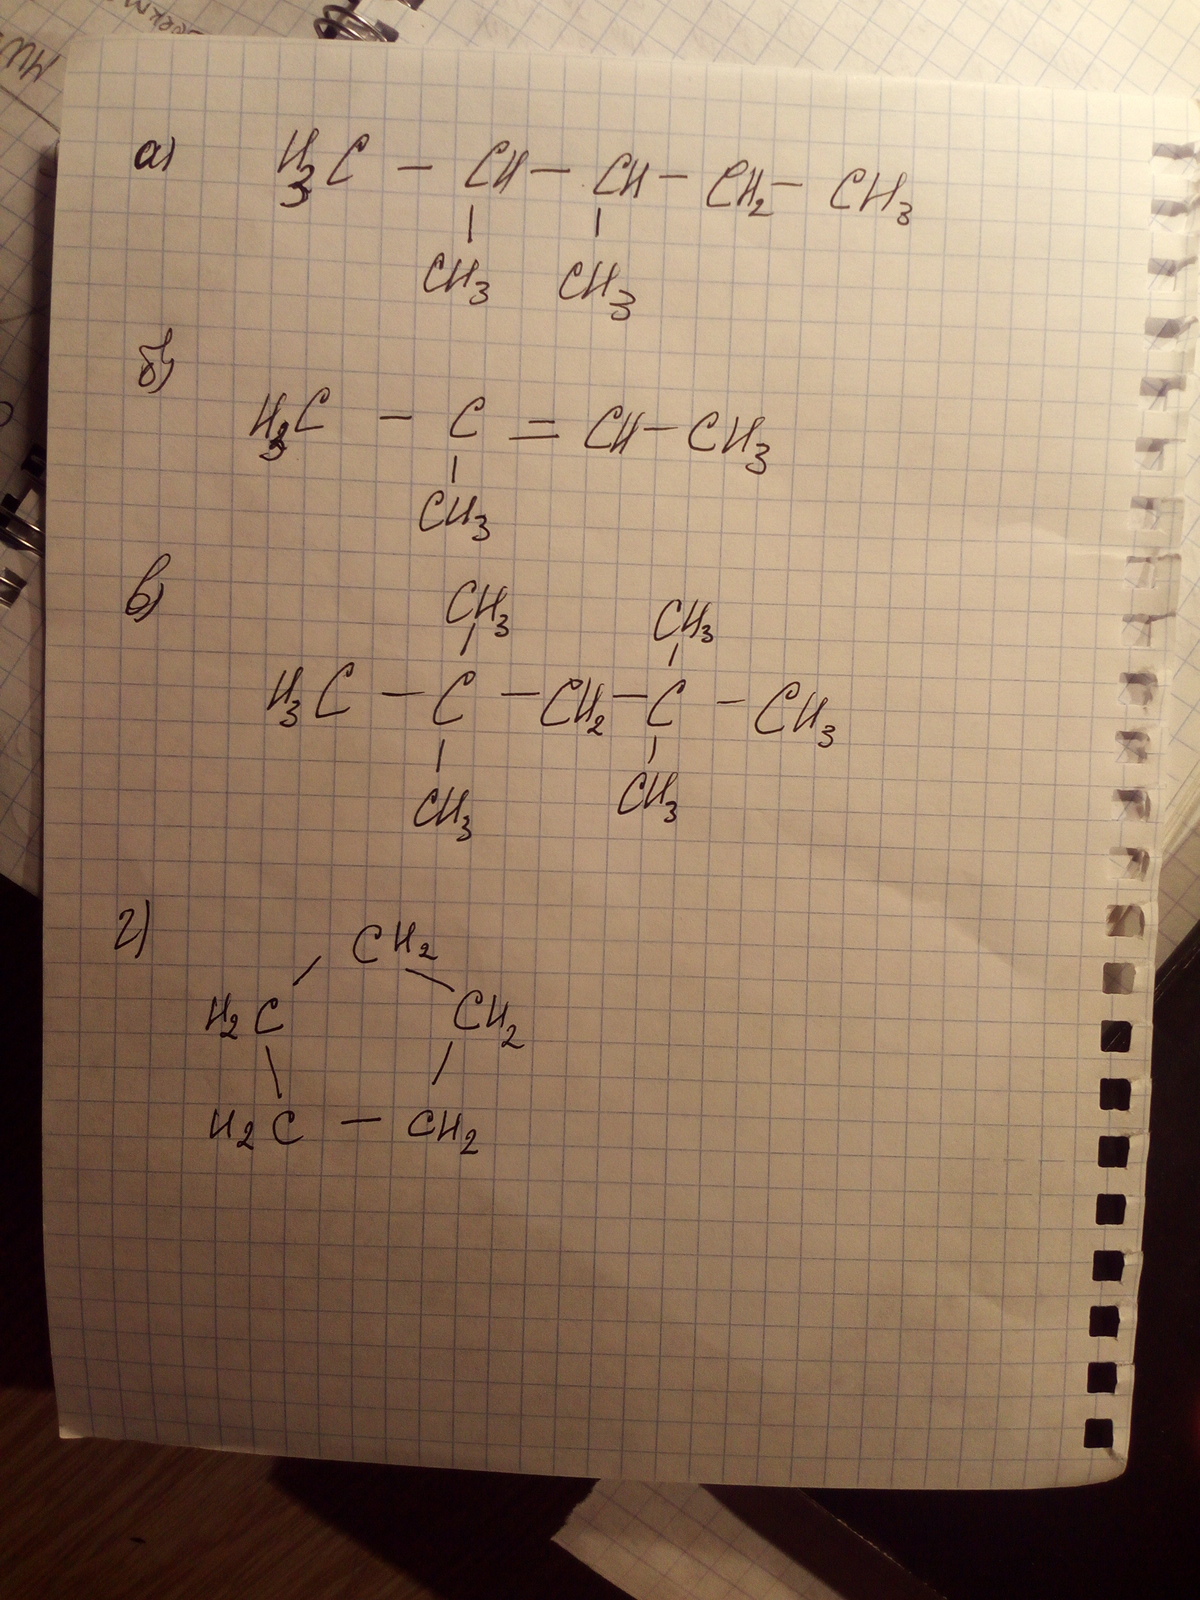 а) H3C - CH - CH - CH2 - CH3
CH3 CH3
б)
H3C - C = CH - CH3
CH3
в)
CH3 CH3
H3C - C - CH2 - C - CH3
CH3 CH3
г)
CH2
H2C CH2
H2C - CH2